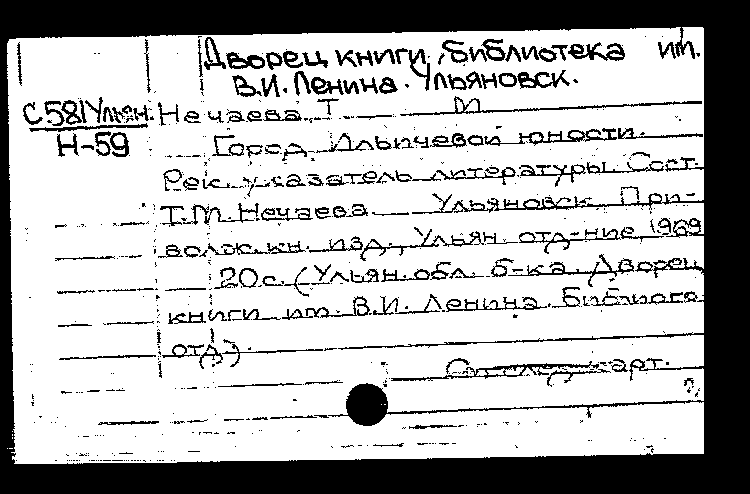 Дворец книги, библиотека им.
В.И. Ленина. Ульяновск.
С58(Ульян. Нечаева, Т М
Н-59 Город Ильичевой юности.
Рек. указатель литературы. Сост.
Т.М. Нечаева. Ульяновск, При-
волж. кн. изд., Ульян. отд-ние, 1969
20с. (Ульян. обл. б-ка. Дворец
книги им. В.И. Ленина. Библиогр.
отд.).
См. след. карт.